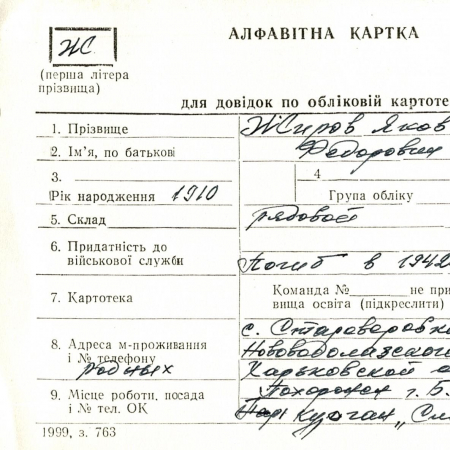 Ж
АЛФАВІТНА КАРТКА
(перша літера
прізвища)
для довідок по обліковій картоте
1. Прізвище Жиров Яков
2. Ім'я, по батькові Федорович
3. 4
Рік народження 1910 Група обліку
5. Склад рядовой
6. Придатність до
військової служби Погиб в 1942
7. Картотека Команда № не при
вища освіта (підкреслити)
с. Староверовка
8. Адреса м-проживання Нововодолазского
і № телефону Харьковской о
родных
9. Місце роботи, посада Похоронен г. Б.
і № тел. ОК курган „Сл
1999, з. 763